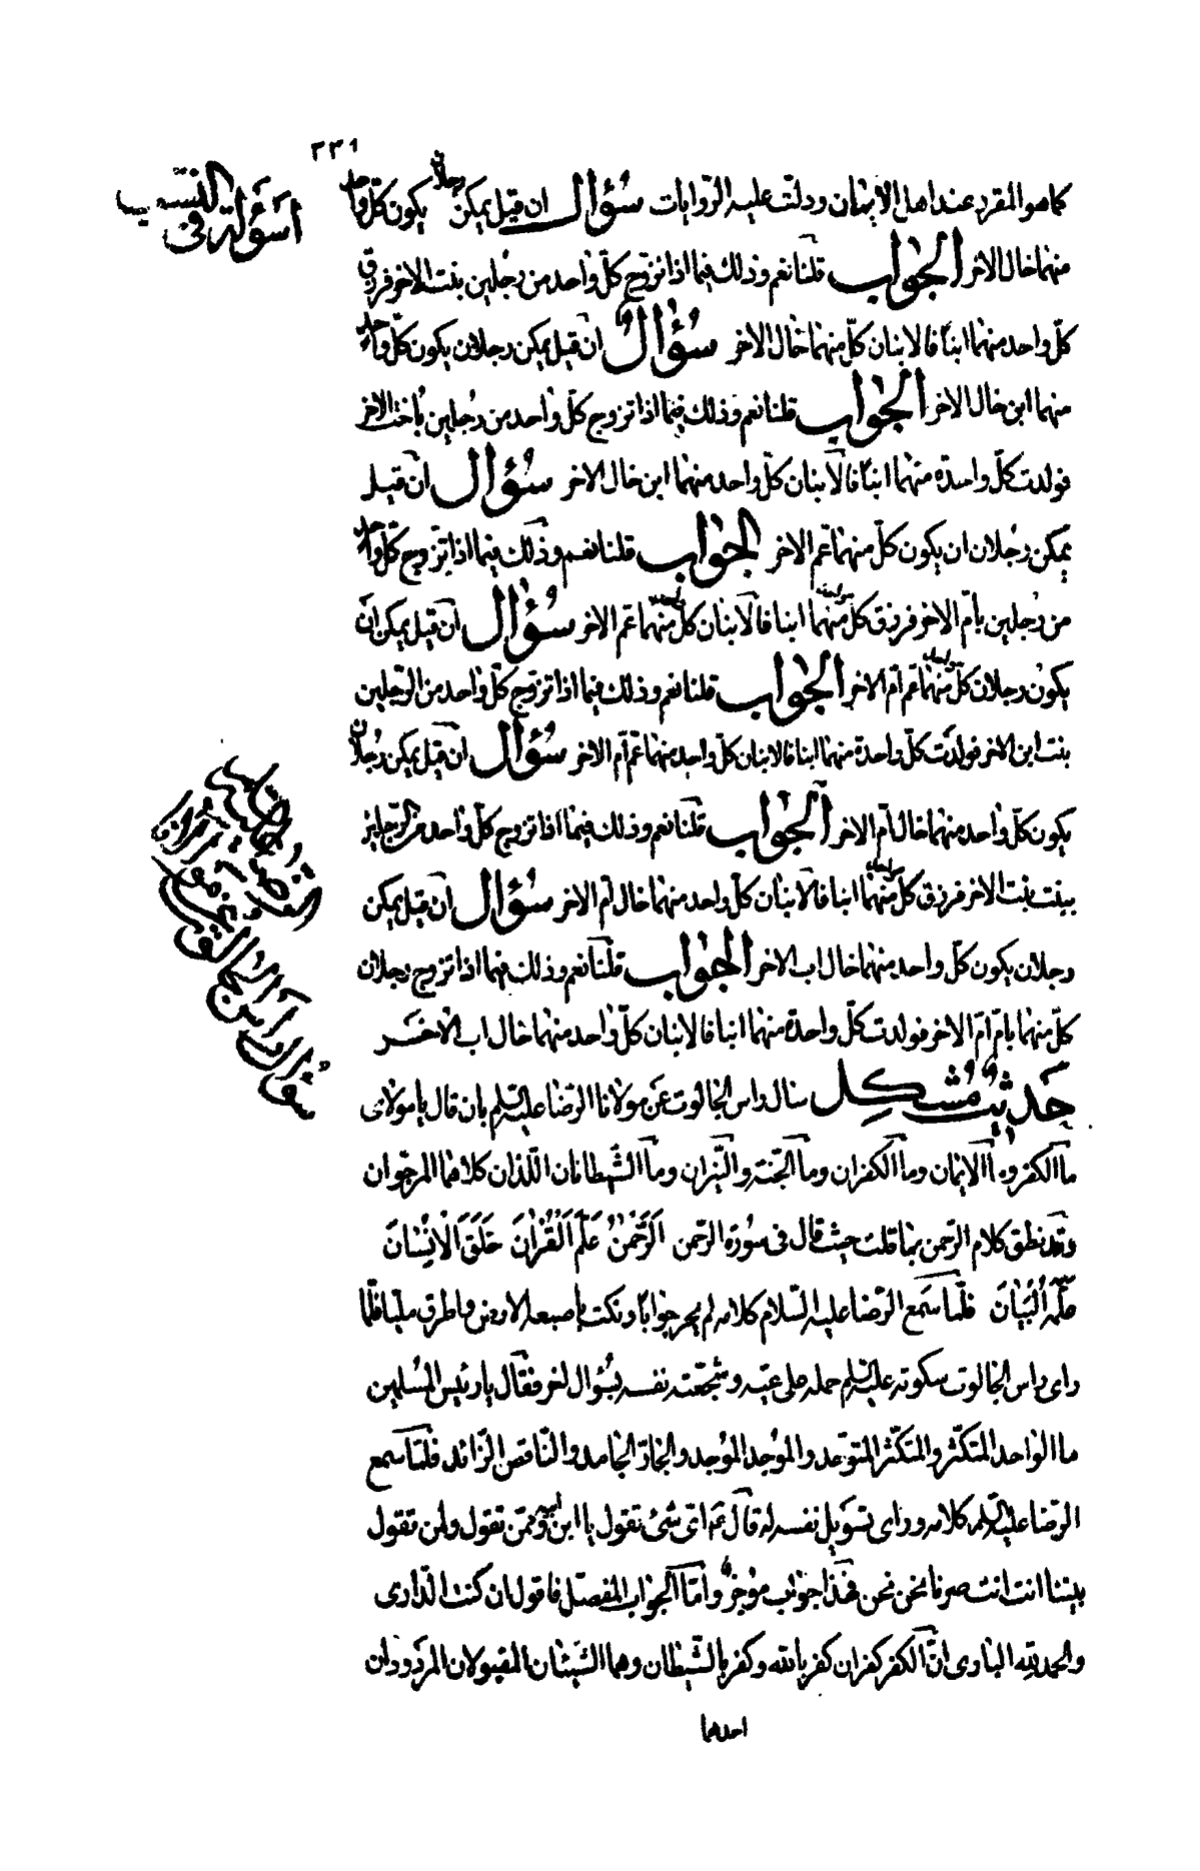 ٢٣٩
أسؤلة في النسب
كما هو المقرر عند اهل الايمان ودلت عليه الروايات سؤال ان قيل يمكن رجلان يكون كل واحد
منهما خال الاخر الجواب قلنا نعم وذلك فيما اذا تزوج كل واحد من رجلين بنت الاخر فرزق
كل واحد منهما ابنا فالابنان كل منهما خال الاخر سؤال ان قيل يمكن رجلان يكون كل واحد
منهما ابن خال الاخر الجواب قلنا نعم وذلك فيما اذا تزوج كل واحد من رجلين باخت الاخر
فولدت كل واحدة منهما ابنا فالابنان كل واحد منهما ابن خال الاخر سؤال ان قيل
يمكن رجلان ان يكون كل منهما عم الاخر الجواب قلنا نعم وذلك فيما اذا تزوج كل واحد
من رجلين بام الاخر فرزق كل منهما ابنا فالابنان كل منهما عم الاخر سؤال ان قيل يمكن ان
يكون رجلان كل منهما عم ام الاخر الجواب قلنا نعم وذلك فيما اذا تزوج كل واحد من الرجلين
بنت ابن الاخر فولدت كل واحدة منهما ابنا فالابنان كل واحد منهما عم ام الاخر سؤال ان قيل يمكن رجلان
يكون كل واحد منهما خال ام الاخر الجواب قلنا نعم وذلك فيما اذا تزوج كل واحد من الرجلين
ببنت بنت الاخر فرزق كل منهما ابنا فالابنان كل واحد منهما خال ام الاخر سؤال ان قيل يمكن
رجلان يكون كل واحد منهما خال اب الاخر الجواب قلنا نعم وذلك فيما اذا تزوج رجلان
كل منهما بام ام الاخر فولدت كل واحدة منهما ابنا فالابنان كل واحد منهما خال اب الاخر
حديث مشكل سئال راس الجالوت عن مولانا الرضا عليه السلم بان قال يا مولاي
ما الكفر وما الايمان وما الكفران وما الجنة والنيران وما الشيطانان اللذان كلاهما المرجوان
وقد نطق كلام الرحمن بما قلت حيث قال في سورة الرحمن اَلرَّحْمٰنُ عَلَّمَ الْقُرْاٰنَ خَلَقَ الْاِنْسٰانَ
عَلَّمَهُ الْبَيٰانَ فلما سمع الرضا عليه السلام كلامه لم يحر جوابا ونكت باصبعه الارض واطرق مليا فلما
راى راس الجالوت سكوته عليه السلم حمله على عيه وشجعته نفسه بسؤال اخر فقال يا رئيس المسلمين
ما الواحد المتكثر والمتكثر المتوحد والموجد الموجد والجارى الجامد والناقص الزائد فلما سمع
الرضا عليه السلم كلامه وراى تسويل نفسه له قال ع اى شئ تقول يا ابن ابيه وممن تقول ولمن تقول
بينا انت انت صرنا نحن نحن فهذا جواب موجز واما الجواب المفصل فاقول ان كنت الدارى
والحمد لله البارى ان الكفر كفران كفر بالله وكفر بالشيطان وهما الشيئان المقبولان المردودان
احدهما
سؤال راس الجالوت